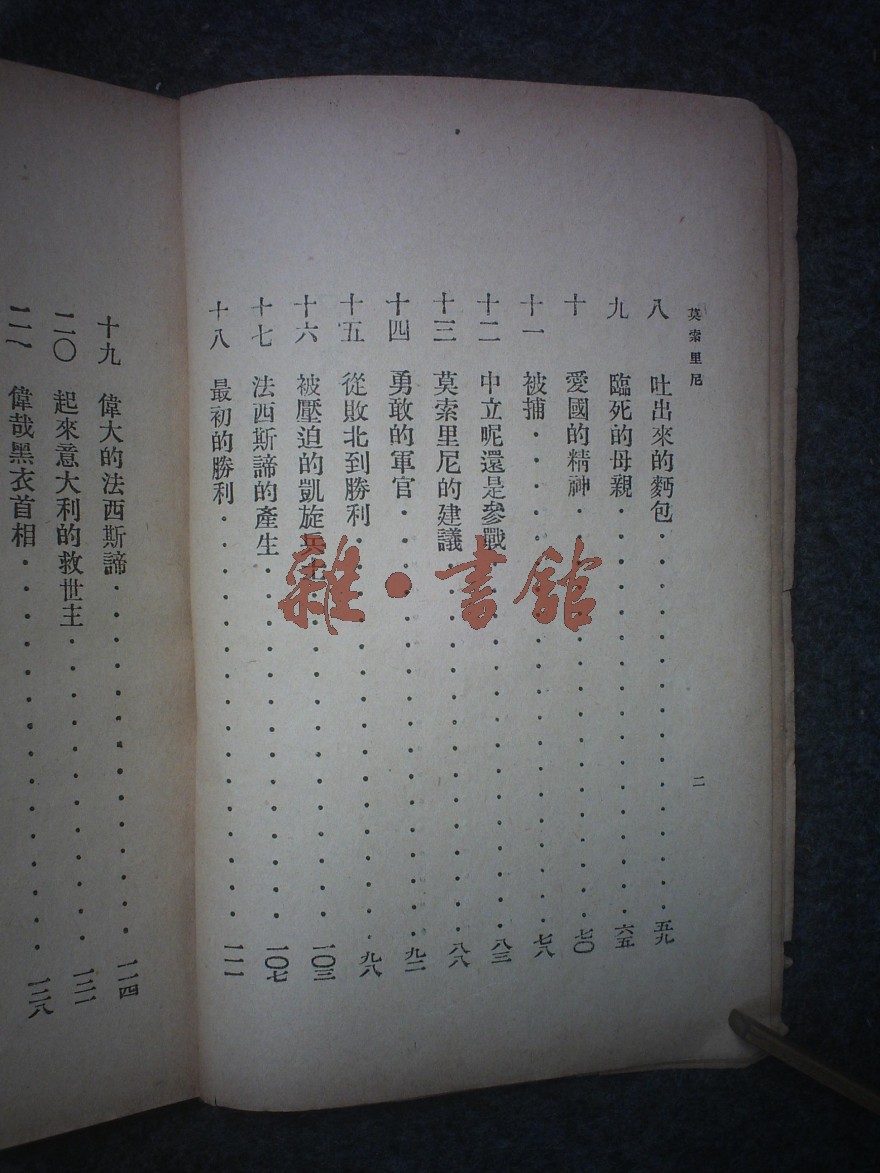 莫索里尼
二
八 吐出來的麪包 五九
九 臨死的母親 六五
十 愛國的精神 七〇
十一 被捕 七八
十二 中立呢還是參戰 八三
十三 莫索里尼的建議 八八
十四 勇敢的軍官 九二
十五 從敗北到勝利 九八
十六 被壓迫的凱旋兵士 一〇三
十七 法西斯諦的產生 一〇七
十八 最初的勝利 一一一
十九 偉大的法西斯諦 一一四
二〇 起來意大利的救世主 一二一
二一 偉哉黑衣首相 一二八
雜·書館